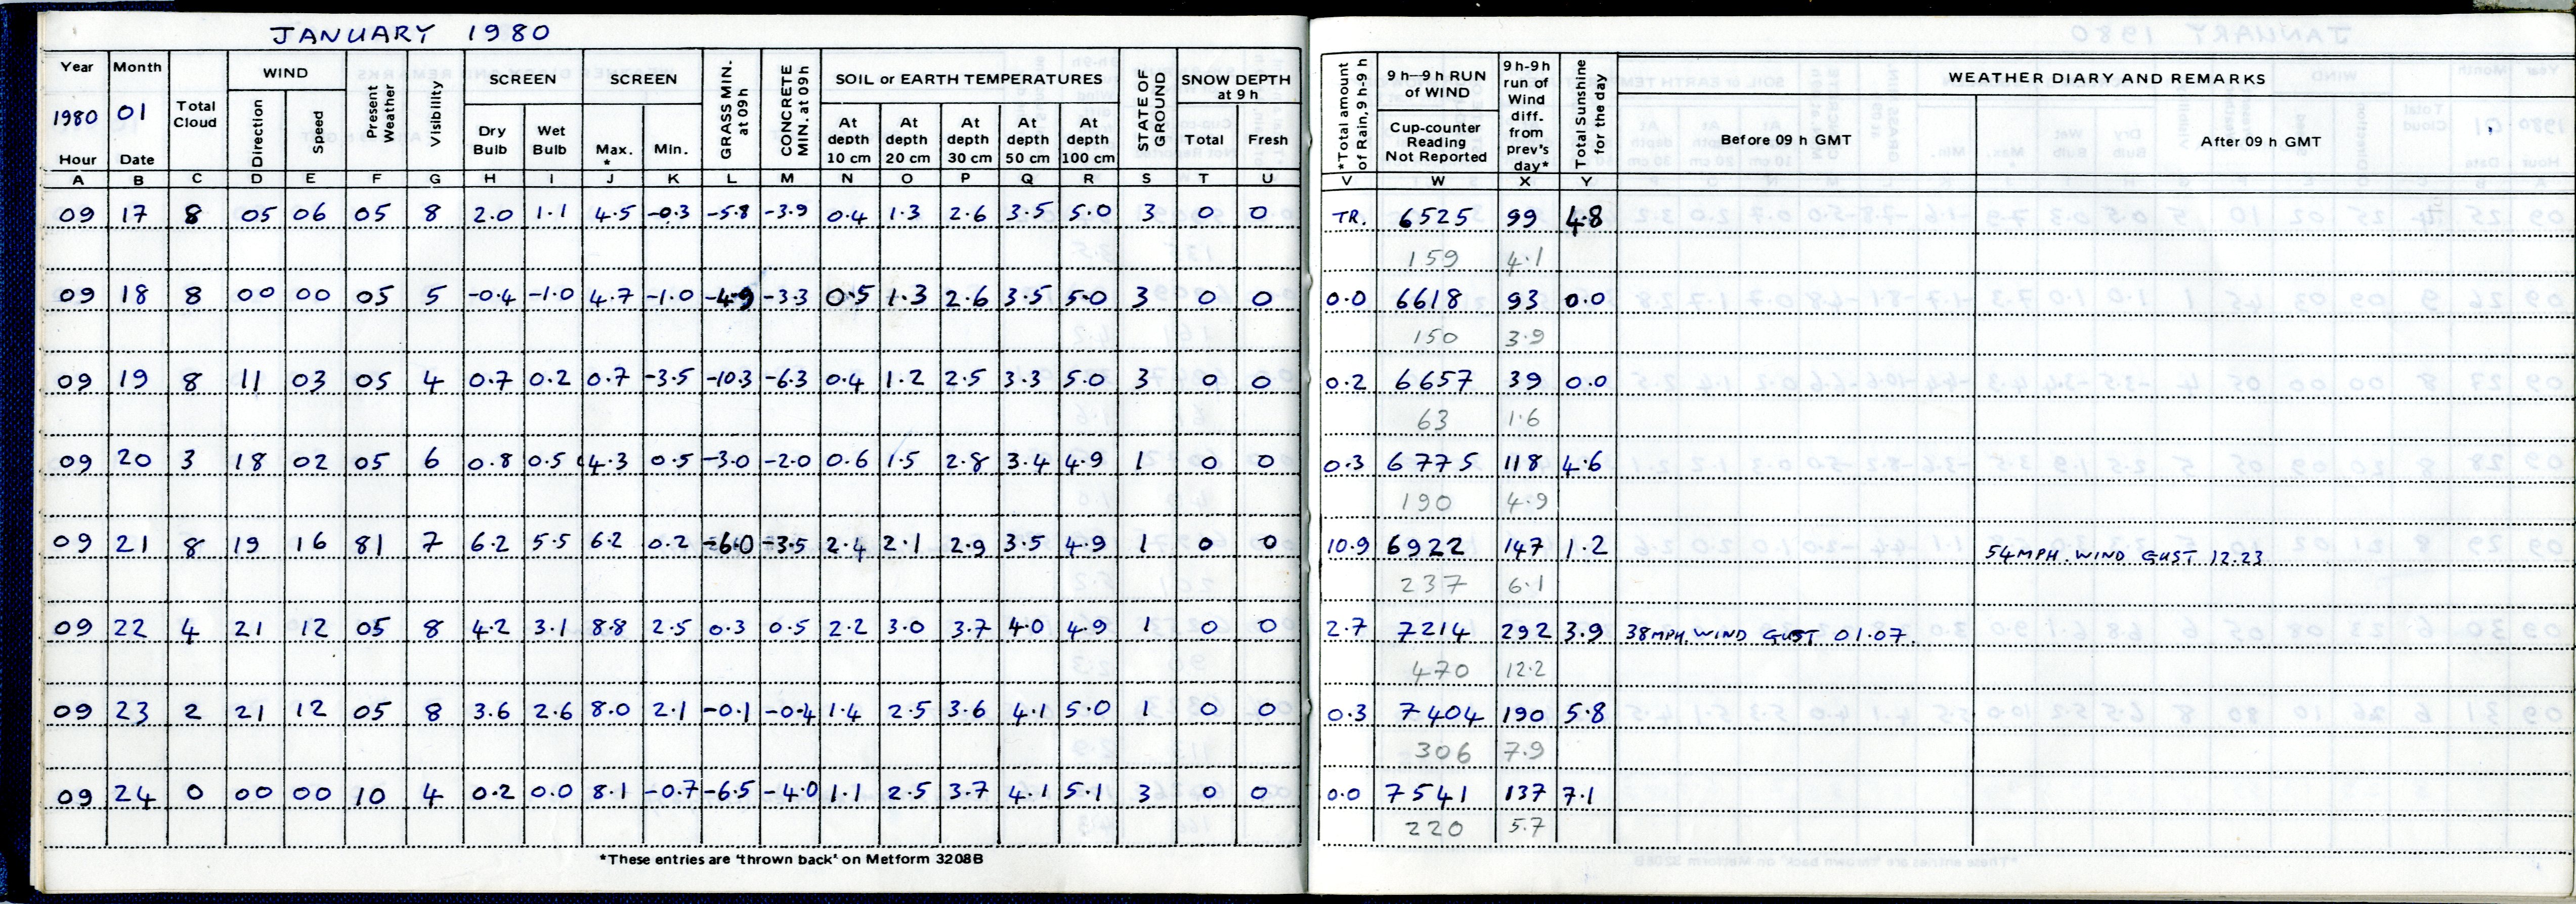 JANUARY 1980
Year Month Total Cloud WIND Present Weather Visibility SCREEN SCREEN GRASS MIN. at 09h CONCRETE MIN. at 09h SOIL or EARTH TEMPERATURES STATE OF GROUND SNOW DEPTH at 9 h *Total amount of Rain, 9h-9h 9 h–9 h RUN of WIND 9h-9h run of Wind diff. from prev's day* Total Sunshine for the day WEATHER DIARY AND REMARKS
1980 01 Direction Speed Dry Bulb Wet Bulb Max. * Min. At depth 10 cm At depth 20 cm At depth 30 cm At depth 50 cm At depth 100 cm Total Fresh Cup-counter Reading Not Reported Before 09 h GMT After 09 h GMT
Hour Date
A B C D E F G H I J K L M N O P Q R S T U V W X Y
09 17 8 05 06 05 8 2.0 1.1 4.5 -0.3 -5.8 -3.9 0.4 1.3 2.6 3.5 5.0 3 0 0 TR. 6525 99 4.8
159 4.1
09 18 8 00 00 05 5 -0.4 -1.0 4.7 -1.0 -4.9 -3.3 0.5 1.3 2.6 3.5 5.0 3 0 0 0.0 6618 93 0.0
150 3.9
09 19 8 11 03 05 4 0.7 0.2 0.7 -3.5 -10.3 -6.3 0.4 1.2 2.5 3.3 5.0 3 0 0 0.2 6657 39 0.0
63 1.6
09 20 3 18 02 05 6 0.8 0.5 4.3 0.5 -3.0 -2.0 0.6 1.5 2.8 3.4 4.9 1 0 0 0.3 6775 118 4.6
190 4.9
09 21 8 19 16 81 7 6.2 5.5 6.2 0.2 -6.0 -3.5 2.4 2.1 2.9 3.5 4.9 1 0 0 10.9 6922 147 1.2 54MPH. WIND GUST 12.23
237 6.1
09 22 4 21 12 05 8 4.2 3.1 8.8 2.5 0.3 0.5 2.2 3.0 3.7 4.0 4.9 1 0 0 2.7 7214 292 3.9 38MPH. WIND GUST 01.07.
470 12.2
09 23 2 21 12 05 8 3.6 2.6 8.0 2.1 -0.1 -0.4 1.4 2.5 3.6 4.1 5.0 1 0 0 0.3 7404 190 5.8
306 7.9
09 24 0 00 00 10 4 0.2 0.0 8.1 -0.7 -6.5 -4.0 1.1 2.5 3.7 4.1 5.1 3 0 0 0.0 7541 137 7.1
220 5.7
*These entries are 'thrown back' on Metform 3208B